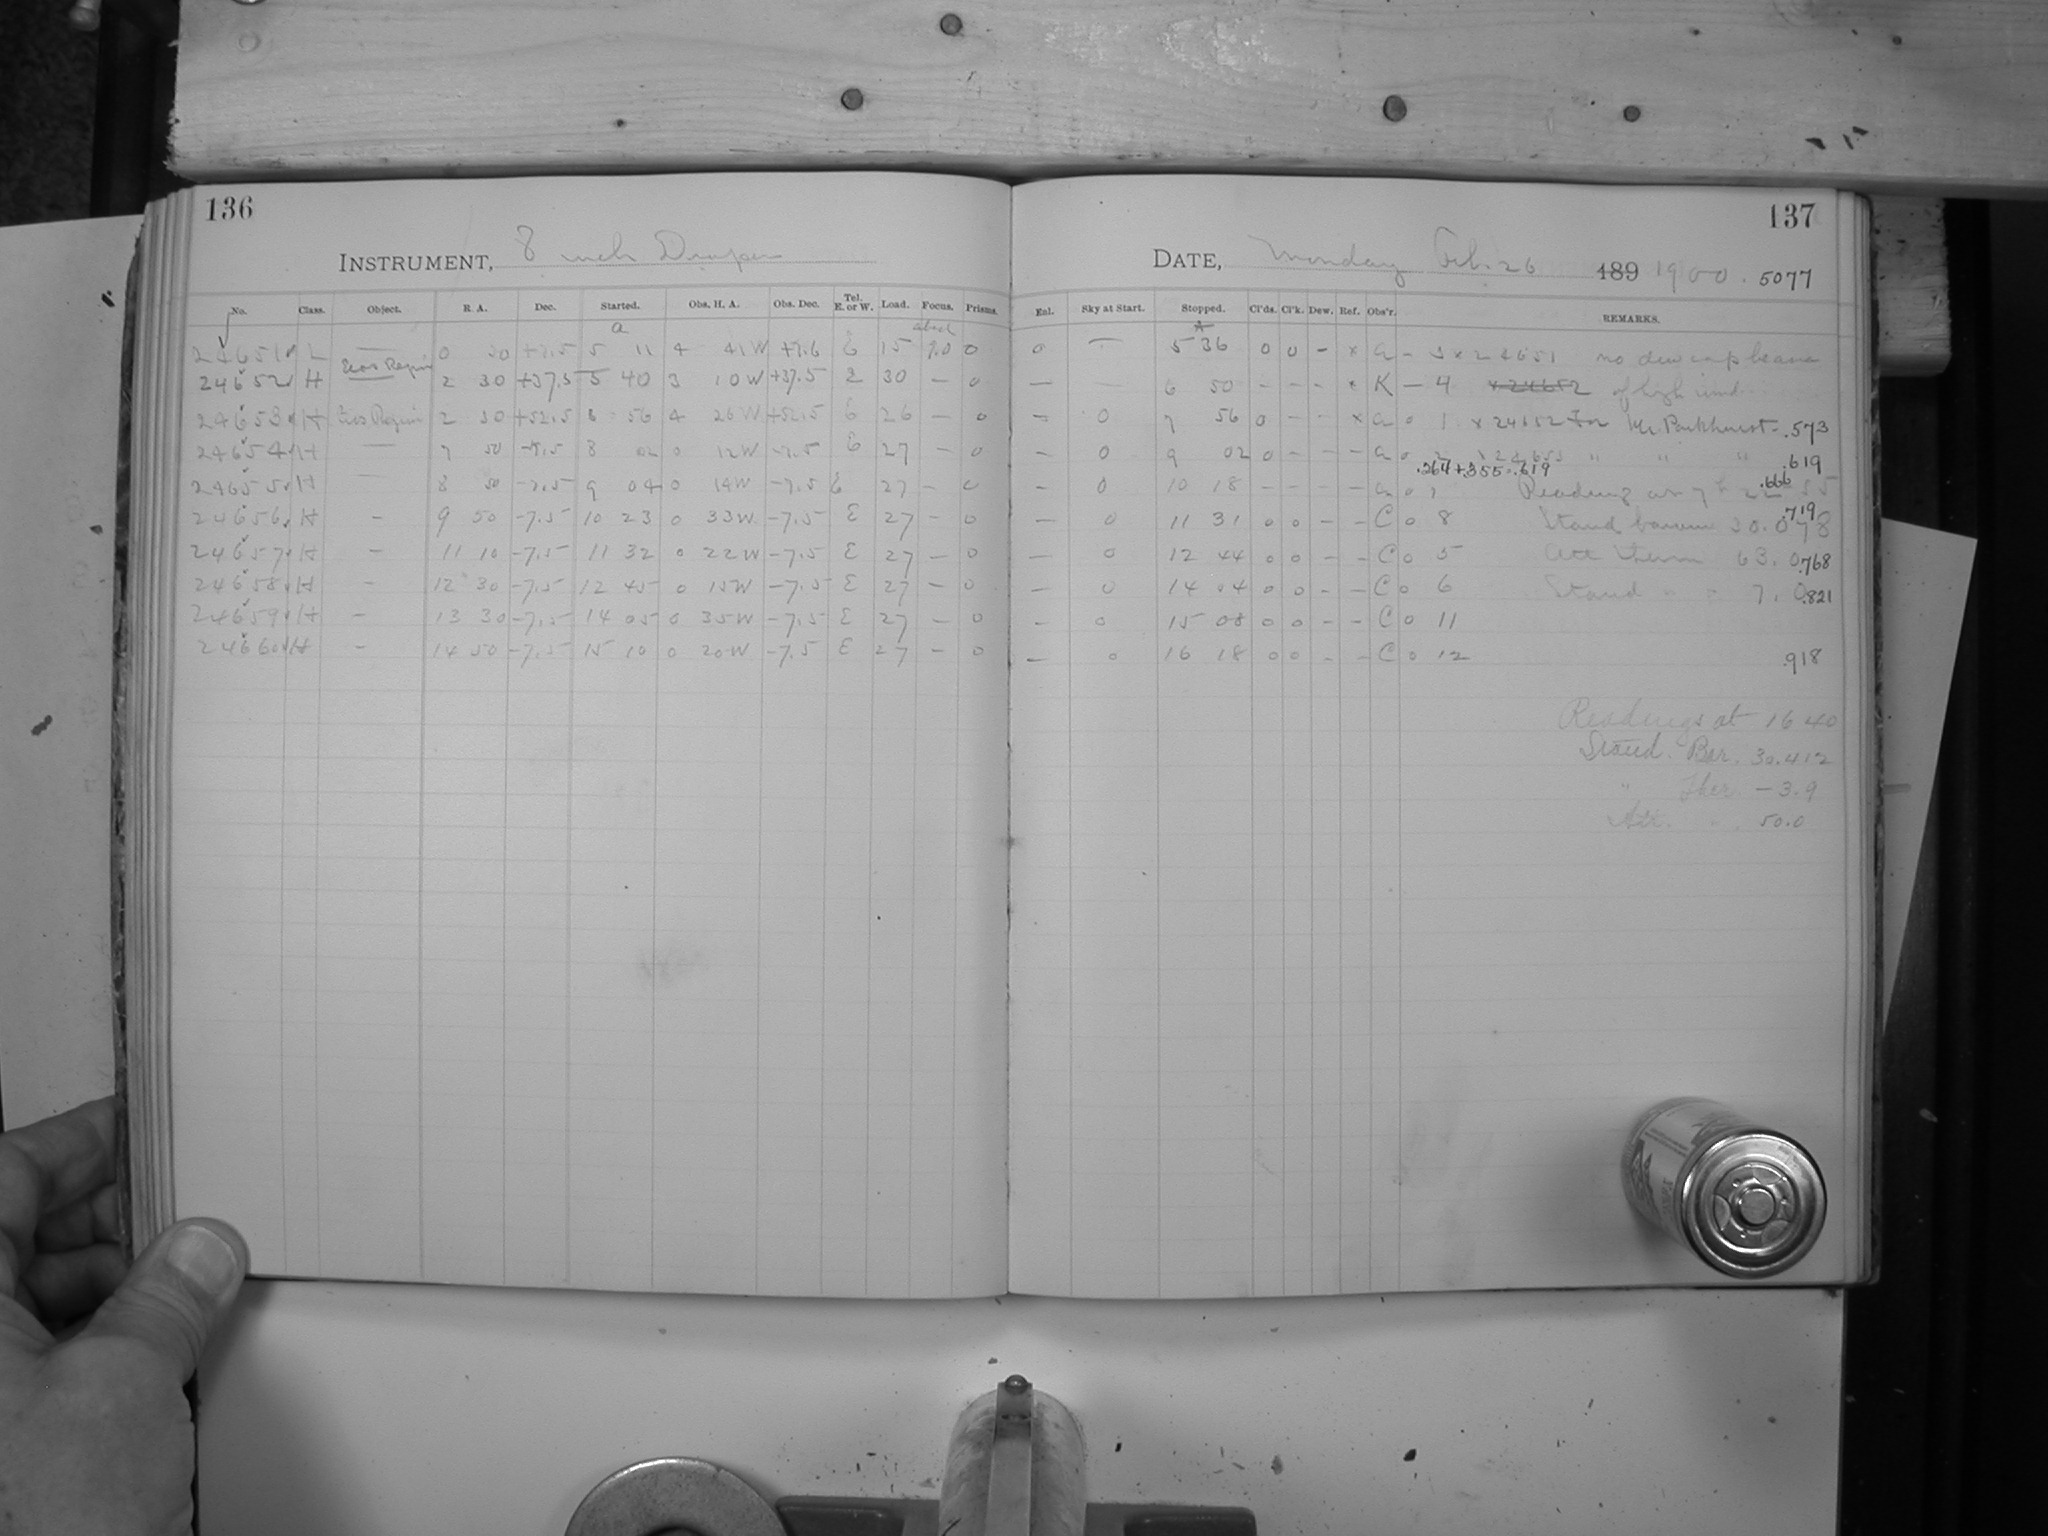 136
INSTRUMENT, 8 inch Draper
No. Class. Object. R. A. Dec. Started. Obs. H. A. Obs. Dec. Tel. E. or W. Load. Focus. Prisms.
a
24651 L — 0 50 +7.5 5 11 4 41 W +7.6 E 15 9.0 0
24652 H Eros Region 2 30 +37.5 5 40 3 10 W +37.5 E 30 — 0
24653 H Eros Region 2 30 +52.5 6 56 4 26 W +52.5 E 26 — 0
24654 H — 7 50 -7.5 8 02 0 12 W -7.5 E 27 — 0
24655 H — 8 50 -7.5 9 04 0 14 W -7.5 E 27 — 0
24656 H — 9 50 -7.5 10 23 0 33 W -7.5 E 27 — 0
24657 H — 11 10 -7.5 11 32 0 22 W -7.5 E 27 — 0
24658 H — 12 30 -7.5 12 45 0 15 W -7.5 E 27 — 0
24659 H — 13 30 -7.5 14 05 0 35 W -7.5 E 27 — 0
24660 H — 14 50 -7.5 15 10 0 20 W -7.5 E 27 — 0
137
DATE, Monday Feb. 26 189 1900. 5077
Enl. Sky at Start. Stopped. Cl'ds. Cl'k. Dew. Ref. Obs'r. REMARKS.
0 — 5 36 0 0 - x a - 3 x 24651 no dew cap because
— — 6 50 - - - x K - 4 x 24652 of high wind
— 0 7 56 0 - - x a 0 1 x 24652 For Mr. Parkhurst .573
— 0 9 02 0 - - - a 0 2 x 24653 " " " .619
.264+.355=.619
.666
— 0 10 18 - - - - a 0 7 Reading at 7h 22 55
.719
— 0 11 31 0 0 - - C 0 8 Stand barom 30.078
— 0 12 44 0 0 - - C 0 5 Att therm 63.0 .768
— 0 14 04 0 0 - - C 0 6 Stand " " 7.0 .821
— 0 15 08 0 0 - - C 0 11
— 0 16 18 0 0 - - C 0 12 .918
Readings at 16 40
Stand. Bar. 30.412
" Ther. -3.9
Att. " 50.0